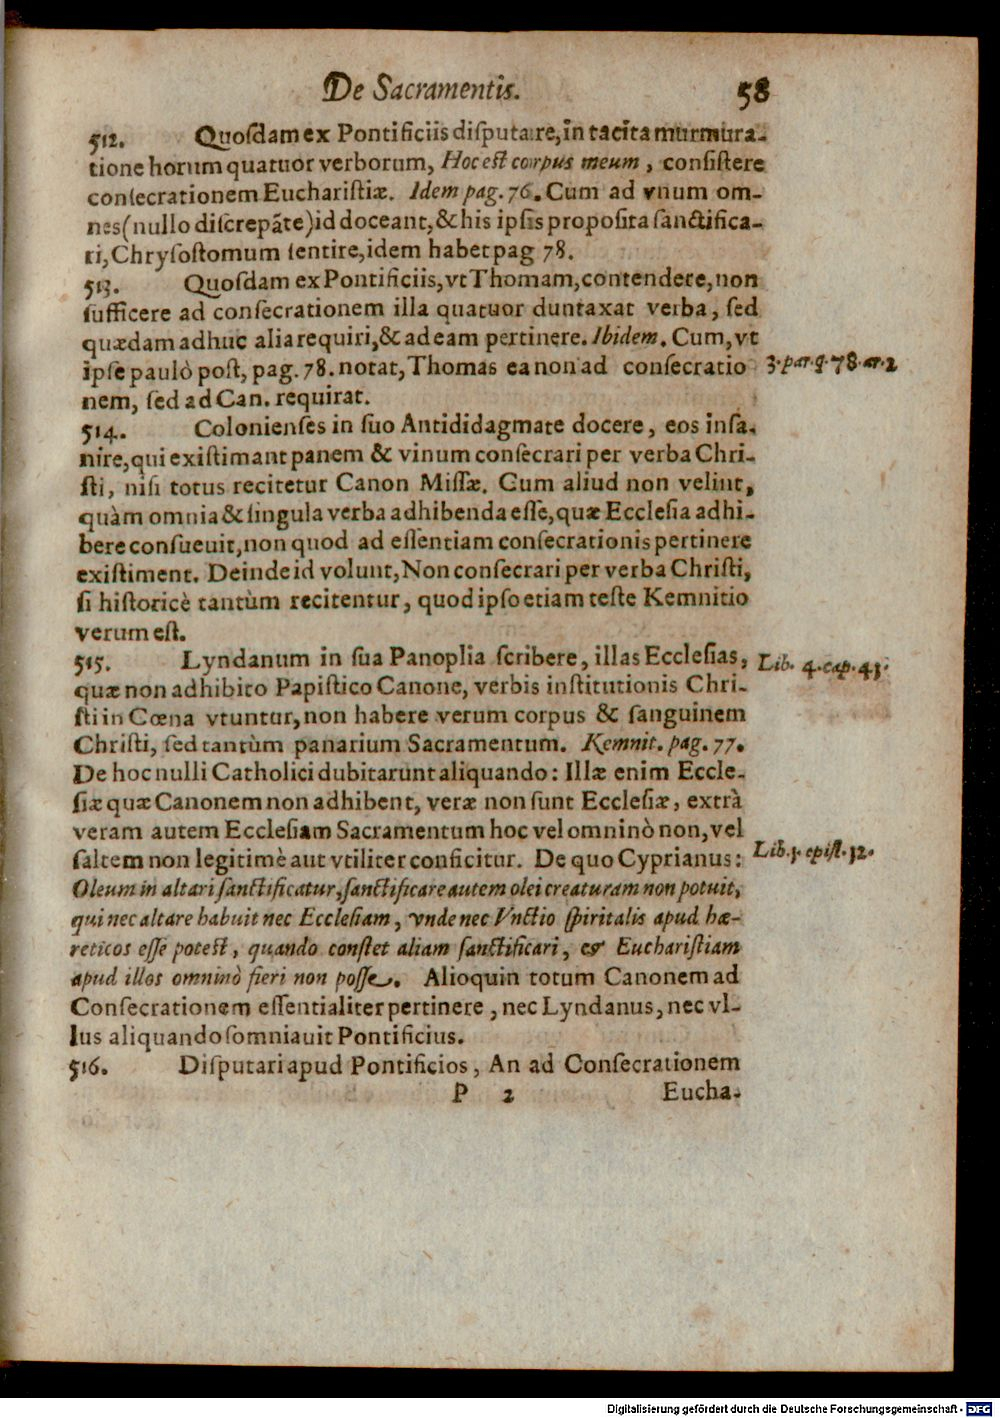 De Sacramentis. 58
512. Quoſdam ex Pontificiis diſputare, in tacita murmura-
tione horum quatuor verborum, Hoc est corpus meum, conſiſtere
conſecrationem Euchariſtiæ. Idem pag. 76. Cum ad vnum om-
nes (nullo diſcrepãte) id doceant, & his ipſis propoſita ſanctifica-
ri, Chryſoſtomum ſentire, idem habet pag 78.
513. Quoſdam ex Pontificiis, vt Thomam, contendere, non
ſufficere ad conſecrationem illa quatuor duntaxat verba, ſed
quædam adhuc alia requiri, & ad eam pertinere. Ibidem. Cum, vt
ipſe paulò poſt, pag. 78. notat, Thomas ea non ad conſecratio 3. par. q. 78. ar. 2
nem, ſed ad Can. requirat.
514. Colonienſes in ſuo Antididagmate docere, eos inſa-
nire, qui exiſtimant panem & vinum conſecrari per verba Chri-
ſti, niſi totus recitetur Canon Miſſæ. Cum aliud non velint,
quàm omnia & ſingula verba adhibenda eſſe, quæ Eccleſia adhi-
bere conſueuit, non quod ad eſſentiam conſecrationis pertinere
exiſtiment. Deinde id volunt, Non conſecrari per verba Chriſti,
ſi hiſtoricè tantùm recitentur, quod ipſo etiam teſte Kemnitio
verum eſt.
515. Lyndanum in ſua Panoplia ſcribere, illas Eccleſias, Lib. 4. cap. 43.
quæ non adhibito Papiſtico Canone, verbis inſtitutionis Chri-
ſti in Cœna vtuntur, non habere verum corpus & ſanguinem
Chriſti, ſed tantùm panarium Sacramentum. Kemnit. pag. 77.
De hoc nulli Catholici dubitarunt aliquando: Illæ enim Eccle-
ſiæ quæ Canonem non adhibent, veræ non ſunt Eccleſiæ, extrà
veram autem Eccleſiam Sacramentum hoc vel omninò non, vel
ſaltem non legitimè aut vtiliter conficitur. De quo Cyprianus: Lib. 1. epiſt. 12.
Oleum in altari ſanctificatur, ſanctificare autem olei creaturam non potuit,
qui nec altare habuit nec Eccleſiam, vnde nec Vnctio ſpiritalis apud hæ-
reticos eſſe potest, quando conſtet aliam ſanctificari, & Euchariſtiam
apud illos omninò fieri non poſſe. Alioquin totum Canonem ad
Conſecrationem eſſentialiter pertinere, nec Lyndanus, nec vl-
lus aliquando ſomniauit Pontificius.
516. Diſputari apud Pontificios, An ad Conſecrationem
P 2 Eucha-
Digitalisierung gefördert durch die Deutsche Forschungsgemeinschaft - DFG